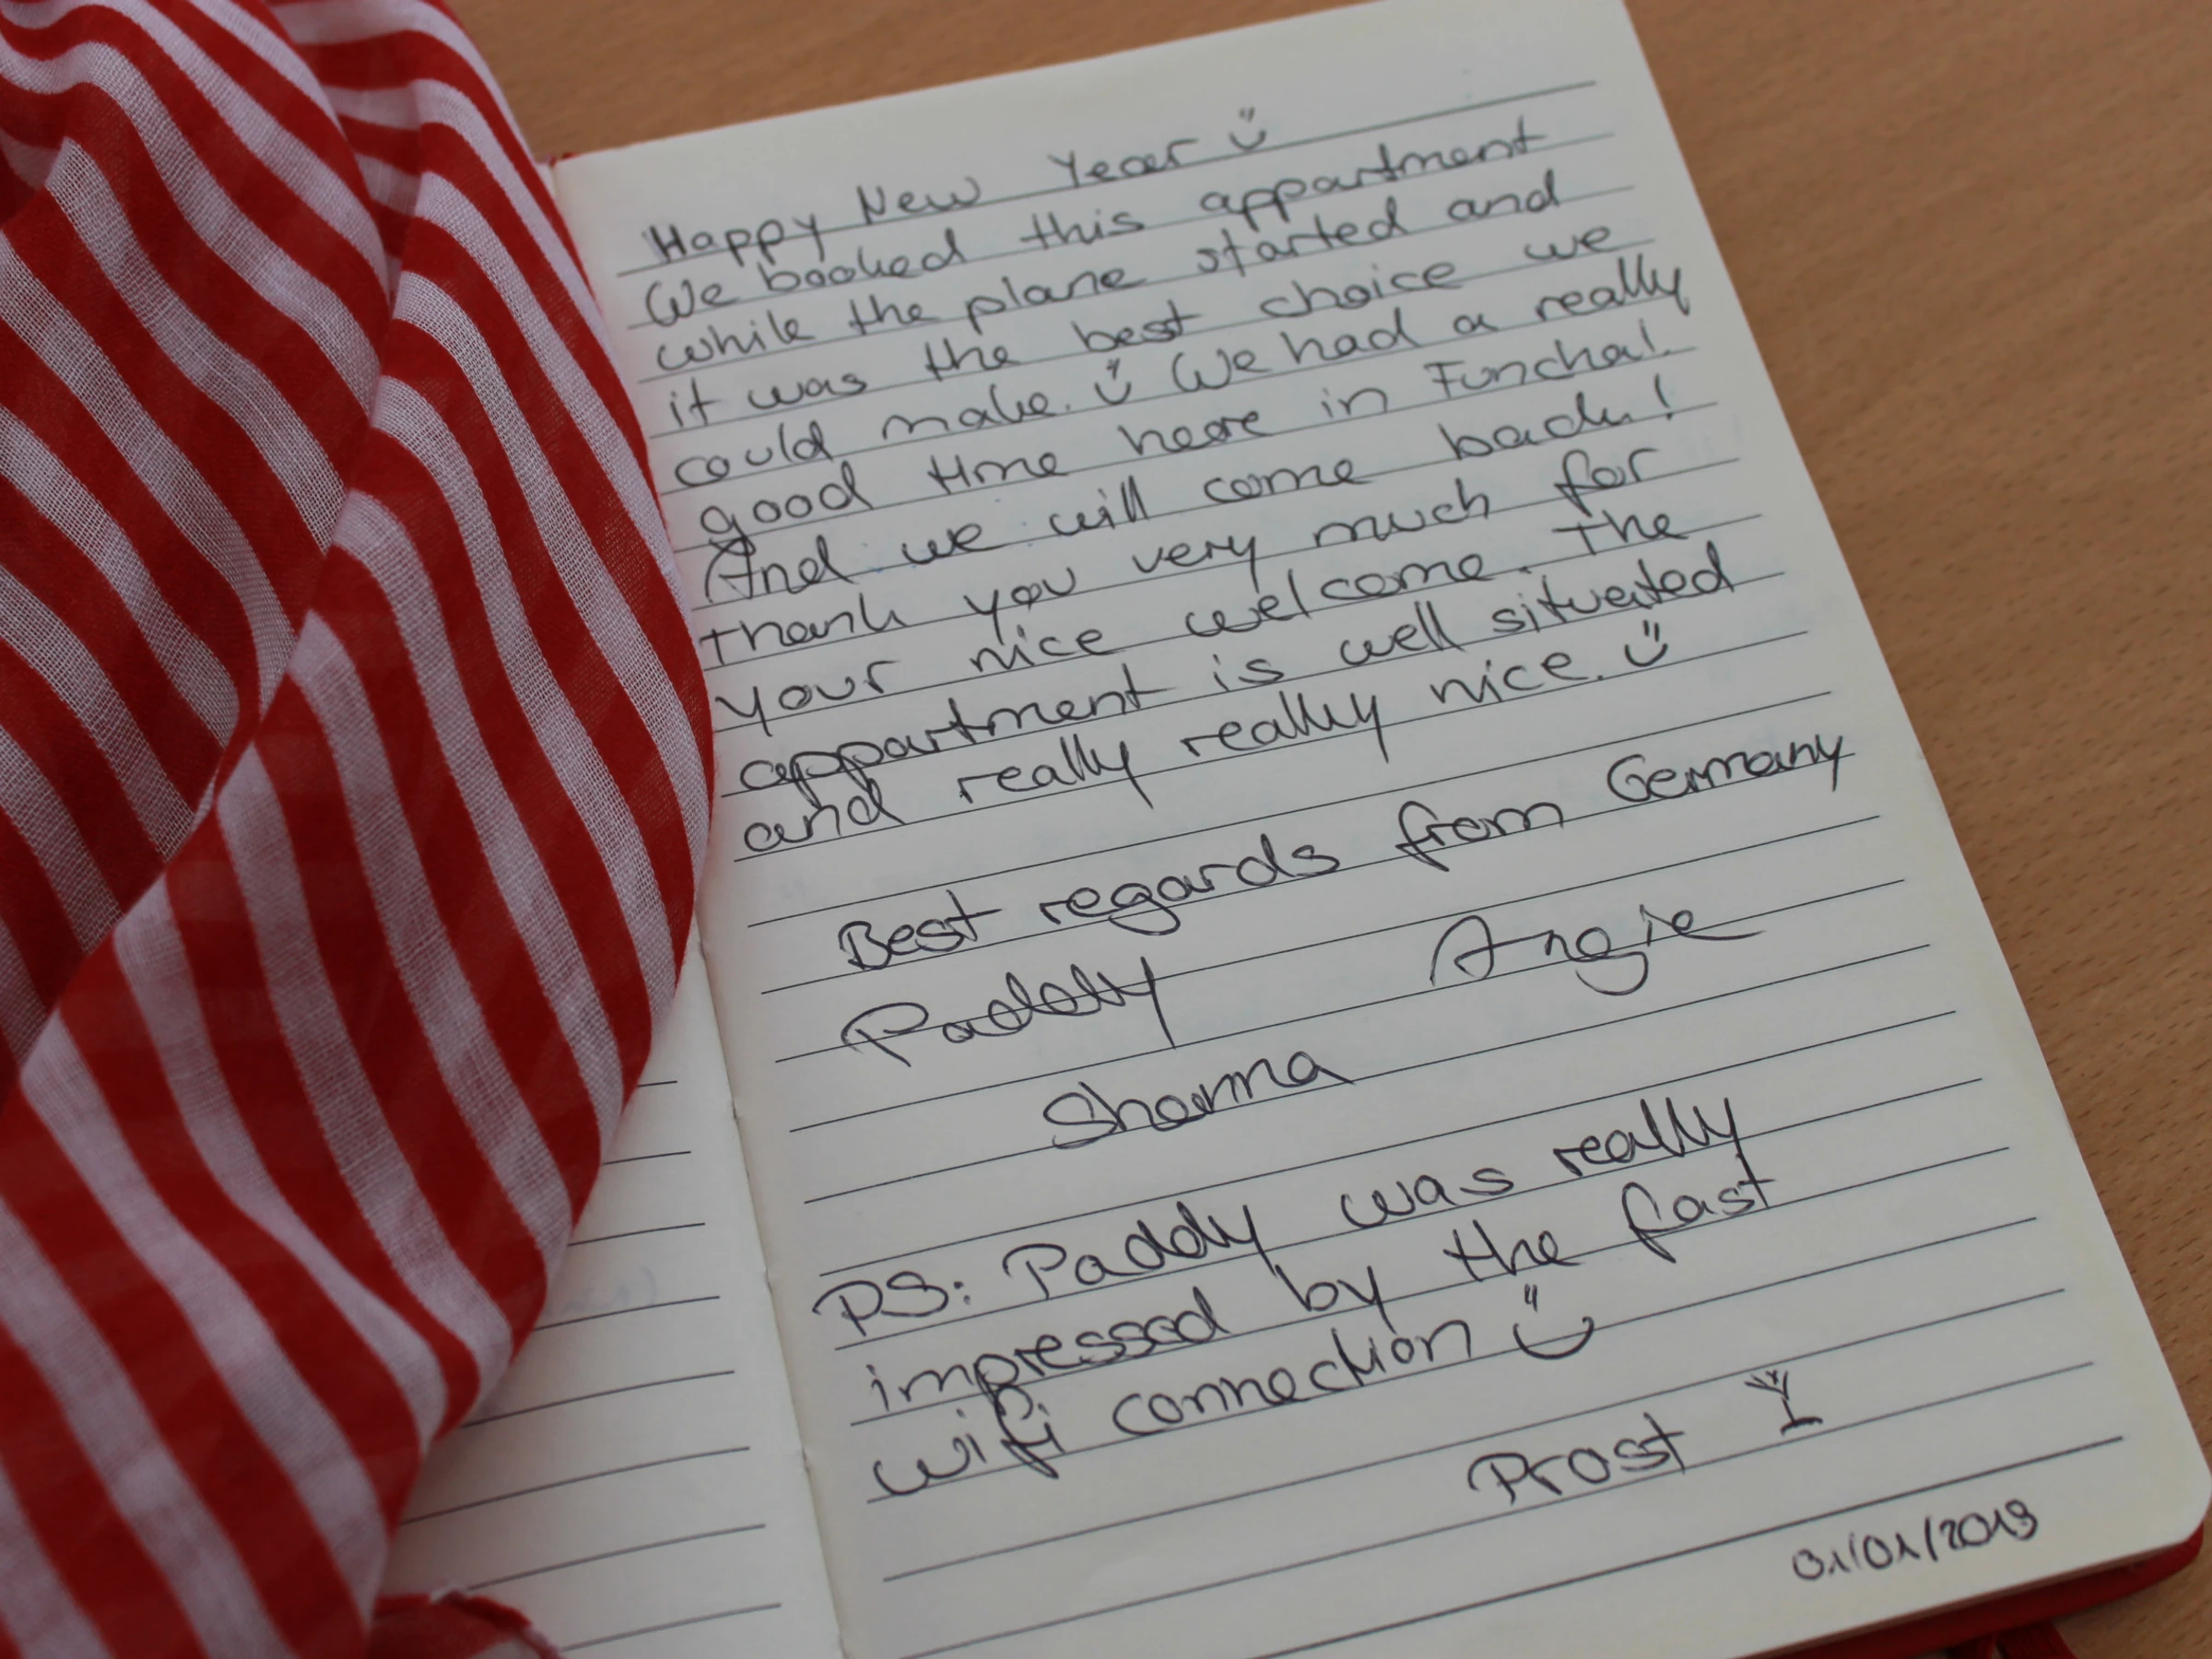 Happy New Year Ü
We booked this appartment
while the plane started and
it was the best choice we
could make. Ü We had a really
good time here in Funchal.
And we will come back!
thank you very much for
your nice welcome. The
appartment is well situated
and really really nice. Ü
Best regards from Germany
Paddy Angie
Shanna
PS: Paddy was really
impressed by the fast
wifi connection Ü
Prost
01/01/2019